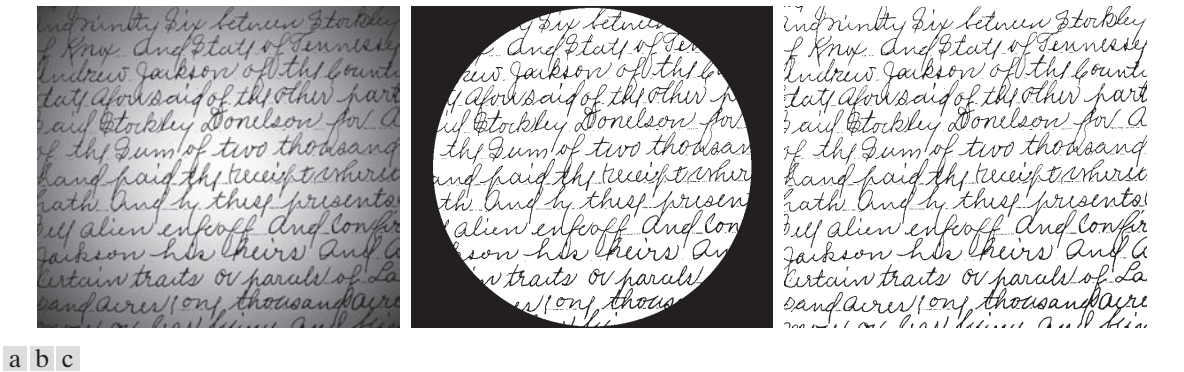 ind ninety Six between Stockley
of Knox. And State of Tennessey
Andrew Jackson of the Count
tate aforesaid of the other part
Said Stockley Donelson for A
of the Sum of two thousand
hand paid the receipt where
hath And by these presents
alien enfeoff And Confir
Jackson his heirs And A
Certain traits or parcels of La
sand acres (one thousand acre
Six between
And State of Ten
rew Jackson of the Co
aforesaid of the other p
id Stockley Donelson for
the Sum of two thousan
and paid the receipt wher
th And by these presen
alien enfeoff And Con
kson his heirs An
in traits or parcels
acres (one thous
ind ninety Six between Stockley
f Knox. And State of Tennessey
Andrew Jackson of the Count
tate aforesaid of the other part
Said Stockley Donelson for A
of the Sum of two thousand
hand paid the receipt where
hath And by these presents
alien enfeoff And Confir
Jackson his heirs And A
Certain traits or parcels of La
sand acres (one thousand acre
a b c